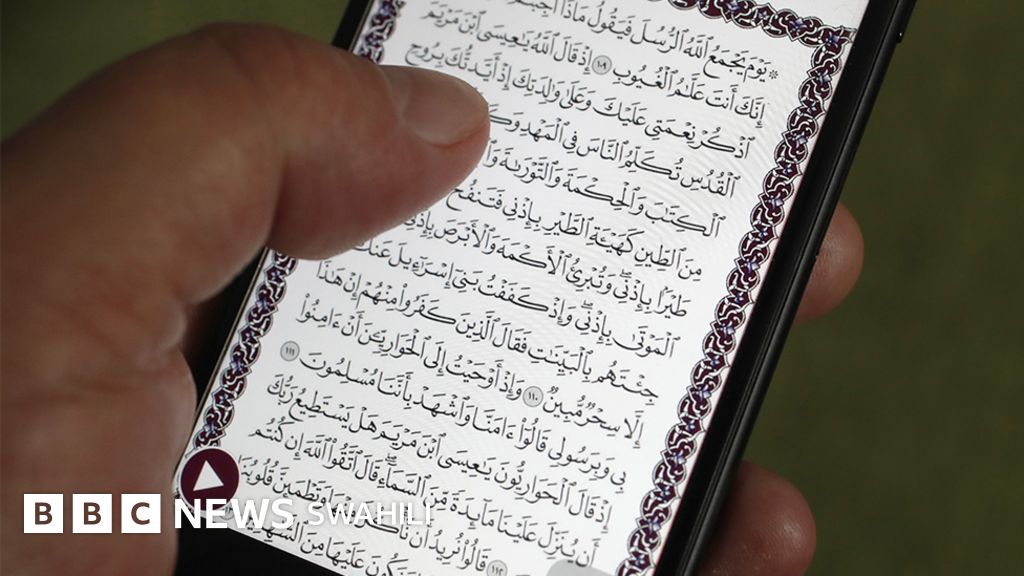 ۞ يَوْمَ يَجْمَعُ ٱللَّهُ ٱلرُّسُلَ فَيَقُولُ مَاذَآ أُجِبْتُمْ
إِنَّكَ أَنتَ عَلَّٰمُ ٱلْغُيُوبِ ١٠٩ إِذْ قَالَ ٱللَّهُ يَٰعِيسَى ٱبْنَ مَرْيَمَ
ٱذْكُرْ نِعْمَتِى عَلَيْكَ وَعَلَىٰ وَٰلِدَتِكَ إِذْ أَيَّدتُّكَ بِرُوحِ
ٱلْقُدُسِ تُكَلِّمُ ٱلنَّاسَ فِى ٱلْمَهْدِ
ٱلْكِتَٰبَ وَٱلْحِكْمَةَ وَٱلتَّوْرَىٰةَ
مِنَ ٱلطِّينِ كَهَيْـَٔةِ ٱلطَّيْرِ بِإِذْنِى فَتَنفُخُ
طَيْرًۢا بِإِذْنِى وَتُبْرِئُ ٱلْأَكْمَهَ وَٱلْأَبْرَصَ بِإِذْنِى
ٱلْمَوْتَىٰ بِإِذْنِى وَإِذْ كَفَفْتُ بَنِىٓ إِسْرَٰٓءِيلَ عَنكَ
جِئْتَهُم بِٱلْبَيِّنَٰتِ فَقَالَ ٱلَّذِينَ كَفَرُوا۟ مِنْهُمْ إِنْ هَٰذَآ
إِلَّا سِحْرٌ مُّبِينٌ ١١٠ وَإِذْ أَوْحَيْتُ إِلَى ٱلْحَوَارِيِّـۧنَ أَنْ ءَامِنُوا۟
بِى وَبِرَسُولِى قَالُوٓا۟ ءَامَنَّا وَٱشْهَدْ بِأَنَّنَا مُسْلِمُونَ ١١١
إِذْ قَالَ ٱلْحَوَارِيُّونَ يَٰعِيسَى ٱبْنَ مَرْيَمَ هَلْ يَسْتَطِيعُ رَبُّكَ
أَن يُنَزِّلَ عَلَيْنَا مَآئِدَةً مِّنَ ٱلسَّمَآءِ قَالَ ٱتَّقُوا۟ ٱللَّهَ إِن كُنتُم
١١٢ قَالُوا۟ نُرِيدُ أَن نَّأْكُلَ مِنْهَا وَتَطْمَئِنَّ قُلُوبُنَا
وَنَكُونَ عَلَيْهَا مِنَ
BBC NEWS SWAHILI